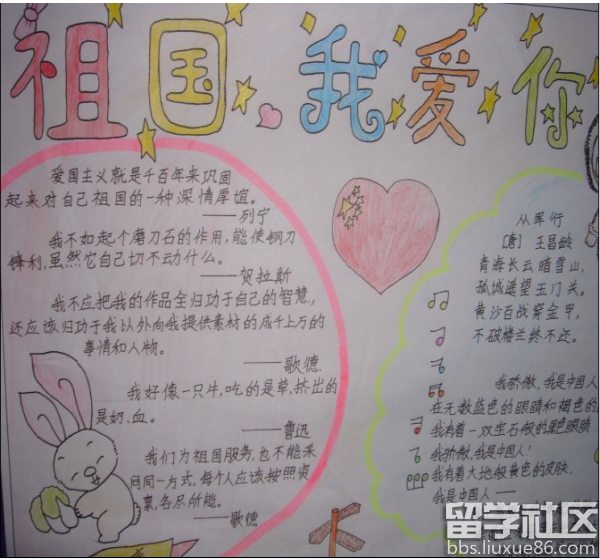 祖国,我爱你
爱国主义就是千百年来巩固
起来对自己祖国的一种深情厚谊。
——列宁
我不如起个磨刀石的作用,能使钢刀
锋利,虽然它自己切不动什么。
——贺拉斯
我不应把我的作品全归功于自己的智慧,
还应该归功于我以外向我提供素材的成千上万的
事情和人物。
——歌德
我好像一只牛,吃的是草,挤出的
是奶、血。
——鲁迅
我们为祖国服务,也不能采
同同一方式,每个人应该按照资
禀,各尽所能。
——歌德
从军行
[唐] 王昌龄
青海长云暗雪山,
孤城遥望玉门关。
黄沙百战穿金甲,
不破楼兰终不还。
我骄傲,我是中国人
在无数蓝色的眼睛和褐色的
我有着一双宝石般的黑色眼睛
我骄傲,我是中国人!
我有着大地般黄色的皮肤
我是中国人——
留学社区
bbs.liuxue86.com